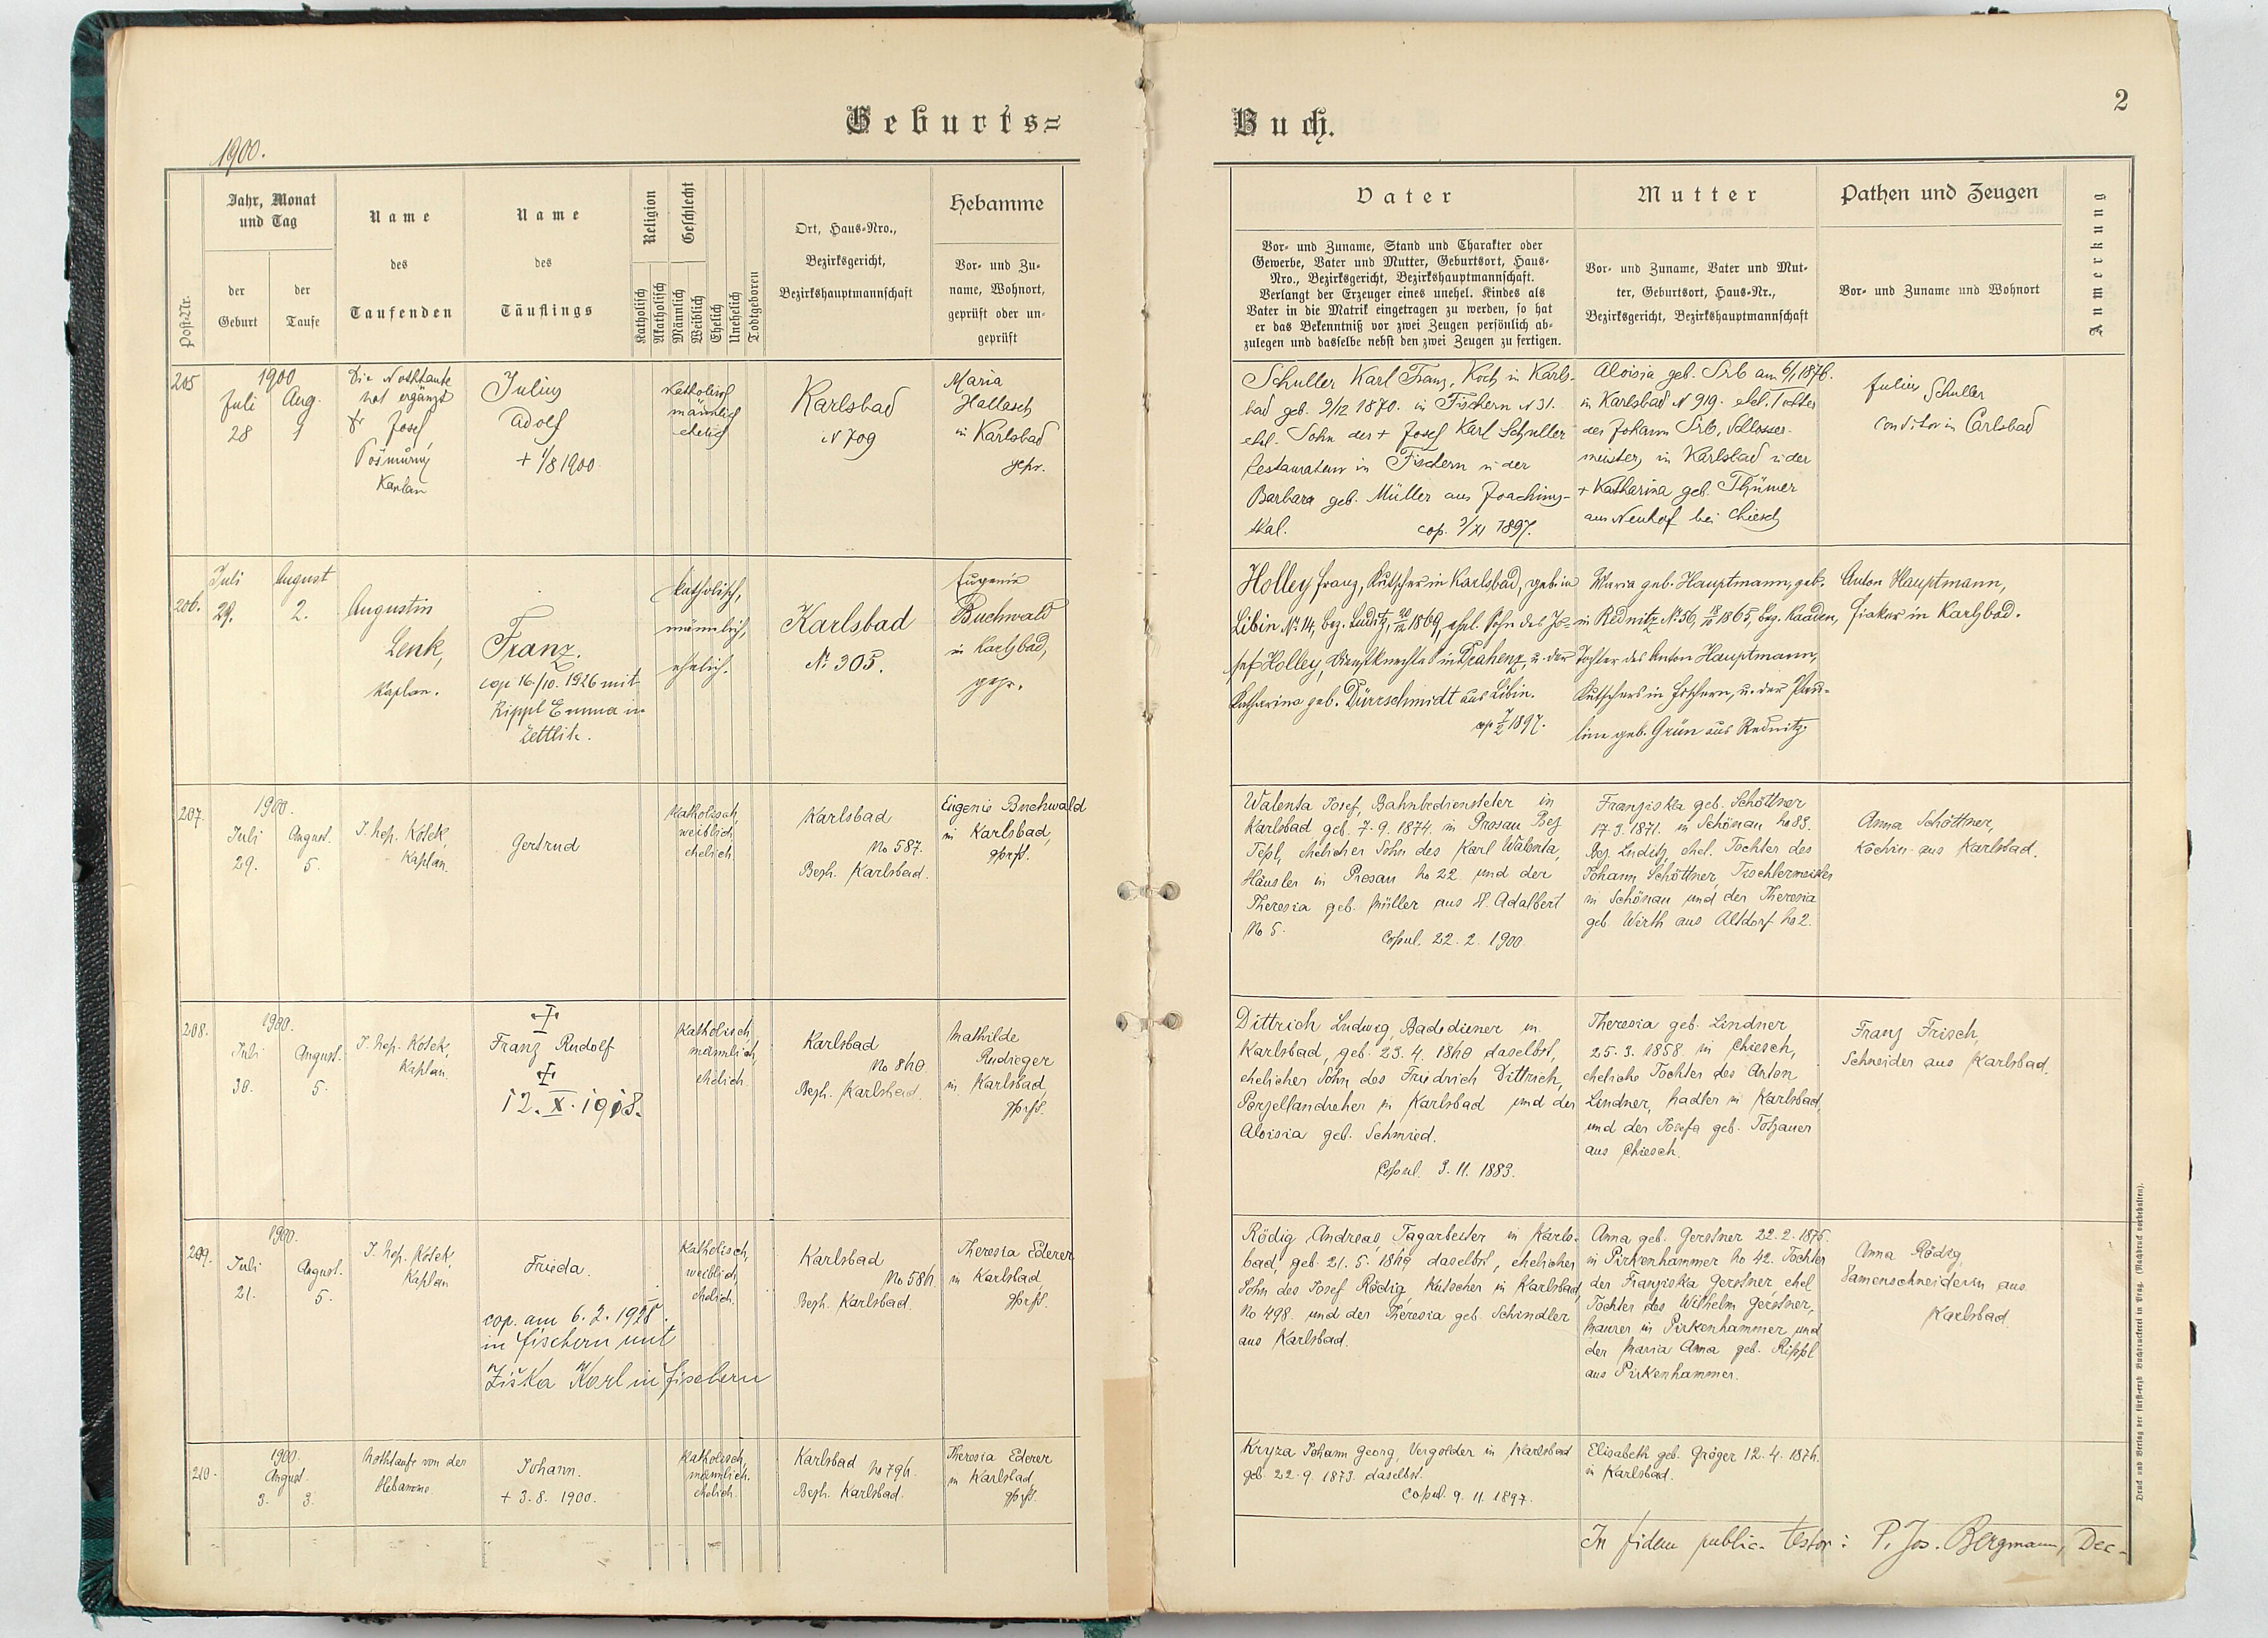 Geburts=
1900.
Post-Nr.
Jahr, Monat
und Tag
der
Geburt
der
Taufe
Name
des
Taufenden
Name
des
Täuflings
Religion
Geschlecht
Katholisch
Akatholisch
Männlich
Weiblich
Ehelich
Unehelich
Todtgeboren
Ort, Haus-Nro.,
Bezirksgericht,
Bezirkshauptmannschaft
Hebamme
Vor- und Zu-
name, Wohnort,
geprüft oder un-
geprüft
205
1900
Juli
28
Aug.
1
Die Nothtaufe
hat ergänzt
Josef
Kaplan
Julius
Adolf
+ 1/8 1900
katholisch
männlich
ehelich
Karlsbad
N 709
Maria
Hallasch
in Karlsbad
gepr.
206.
Juli
29.
August
2.
Augustin
Lenk,
Kaplan.
Franz.
cop 16./10. 1926 mit
Rippl Emma in
Zettlitz.
katholisch,
männlich,
ehelich.
Karlsbad
Nº 305.
Eugenie
Buchwald
in Karlsbad,
gepr.
207.
1900.
Juli
29.
August.
5.
J. Nep. Kotek,
Kaplan.
Gertrud
Katholisch,
weiblich
ehelich
Karlsbad
No 587.
Bezh. Karlsbad.
Eugenie Buchwald
in Karlsbad,
gprft.
208.
1900.
Juli
30.
August.
5.
J. Nep. Kotek,
Kaplan.
Franz Rudolf
12. X. 1918.
Katholisch,
männlich,
ehelich
Karlsbad
No 840.
Bezh. Karlsbad.
Mathilde
Rudieger
in Karlsbad,
gprft.
209.
1900.
Juli
21.
August.
5.
J. Nep. Kotek,
Kaplan
Frieda.
cop. am 6. 2. 1928.
in Fischern mit
Žiška Karl in Fischern
Katholisch,
weiblich
ehelich.
Karlsbad
No 584.
Bezh. Karlsbad.
Theresia Ederer
in Karlsbad,
gprft.
210.
1900.
August.
3.
3.
Nothtaufe von der
Hebamme
Johann.
+ 3. 8. 1900.
Katholisch,
männlich.
ehelich.
Karlsbad No 794.
Bezh. Karlsbad.
Theresia Ederer
in Karlsbad
gprft.
Buch.
2
Vater
Vor- und Zuname, Stand und Charakter oder
Gewerbe, Vater und Mutter, Geburtsort, Haus-
Nro., Bezirksgericht, Bezirkshauptmannschaft.
Verlangt der Erzeuger eines unehel. Kindes als
Vater in die Matrik eingetragen zu werden, so hat
er das Bekenntniß vor zwei Zeugen persönlich ab-
zulegen und dasselbe nebst den zwei Zeugen zu fertigen.
Mutter
Vor- und Zuname, Vater und Mut-
ter, Geburtsort, Haus-Nr.,
Bezirksgericht, Bezirkshauptmannschaft
Pathen und Zeugen
Vor- und Zuname und Wohnort
Anmerkung
Schuller Karl Franz, Koch in Karls-
bad geb. 9/12 1870. in Fischern N 31.
ehel. Sohn des + Josef Karl Schuller
Restaurateur in Fischern u der
Barbara geb. Müller aus Joachims-
thal.
cop. 3/XI 1897.
Aloisia geb. Srb am 6/1 1876.
in Karlsbad N 919. ehel. Tochter
des Johann Srb, Schlosser-
meister, in Karlsbad u der
+ Katharina geb. Thümer
aus Neuhof bei Chiesch
Julius Schuller
Conditor in Carlsbad
Holley Franz, Kutscher in Karlsbad, geb. in
Libin Nº 14, bez. Luditz, 20/12 1869, ehel. Sohn des Jo-
sef Holley, Dienstknechts in Drahenz, u. der
Katharina geb. Dürrschmidt aus Libin.
cop 7/2 1897.
Maria geb. Hauptmann, geb.
in Rednitz Nº 56, 18/11 1865, bez. Kaaden,
Tochter des Anton Hauptmann,
Kutschers in Fischern, u. der Pau-
line geb. Grün aus Rednitz.
Anton Hauptmann,
Fiaker in Karlsbad.
Walenta Josef, Bahnbediensteter in
Karlsbad geb. 7. 9. 1874. in Prosau Bez
Tepl, ehelicher Sohn des Karl Walenta,
Häusler in Prosau No 22 und der
Theresia geb. Müller aus St. Adalbert
No 5.
Copul. 22. 2. 1900.
Franziska geb. Schöttner
17. 3. 1871. in Schönau No 83.
Bez. Luditz, ehel. Tochter des
Johann Schöttner, Tischlermeister
in Schönau und der Theresia
geb. Wirth aus Altdorf No 2.
Anna Schöttner,
Köchin aus Karlsbad.
Dittrich Ludwig, Badediener in
Karlsbad, geb. 23. 4. 1860 daselbst,
ehelicher Sohn des Friedrich Dittrich,
Porzellandreher in Karlsbad und der
Aloisia geb. Schmied.
Copul. 3. 11. 1883.
Theresia geb. Lindner,
25. 3. 1858. in Chiesch,
eheliche Tochter des Anton
Lindner, Nadler in Karlsbad,
und der Josefa geb. Totzauer
aus Chiesch.
Franz Frisch,
Schneider aus Karlsbad.
Rödig Andreas, Tagarbeiter in Karls-
bad, geb. 21. 5. 1869 daselbst, ehelicher
Sohn des Josef Rödig, Kutscher in Karlsbad,
No 498. und der Theresia geb. Schindler
aus Karlsbad.
Anna geb. Gerstner 22. 2. 1875.
in Pirkenhammer No 42. Tochter
der Franziska Gerstner, ehel
Tochter des Wilhelm Gerstner,
Maurer in Pirkenhammer und
der Maria Anna geb. Rippl
aus Pirkenhammer.
Anna Rödig,
Damenschneiderin aus
Karlsbad
Kryza Johann Georg, Vergolder in Karlsbad
geb. 22. 9. 1873. daselbst.
Copul. 9. 11. 1897.
Elisabeth geb. Gröger 12. 4. 1876.
in Karlsbad.
In fidem public. testor: P. Jos. Bergmann, Dec-
Druck und Verlag der fürst-erzb. Buchdruckerei in Prag. (Nachdruck vorbehalten).